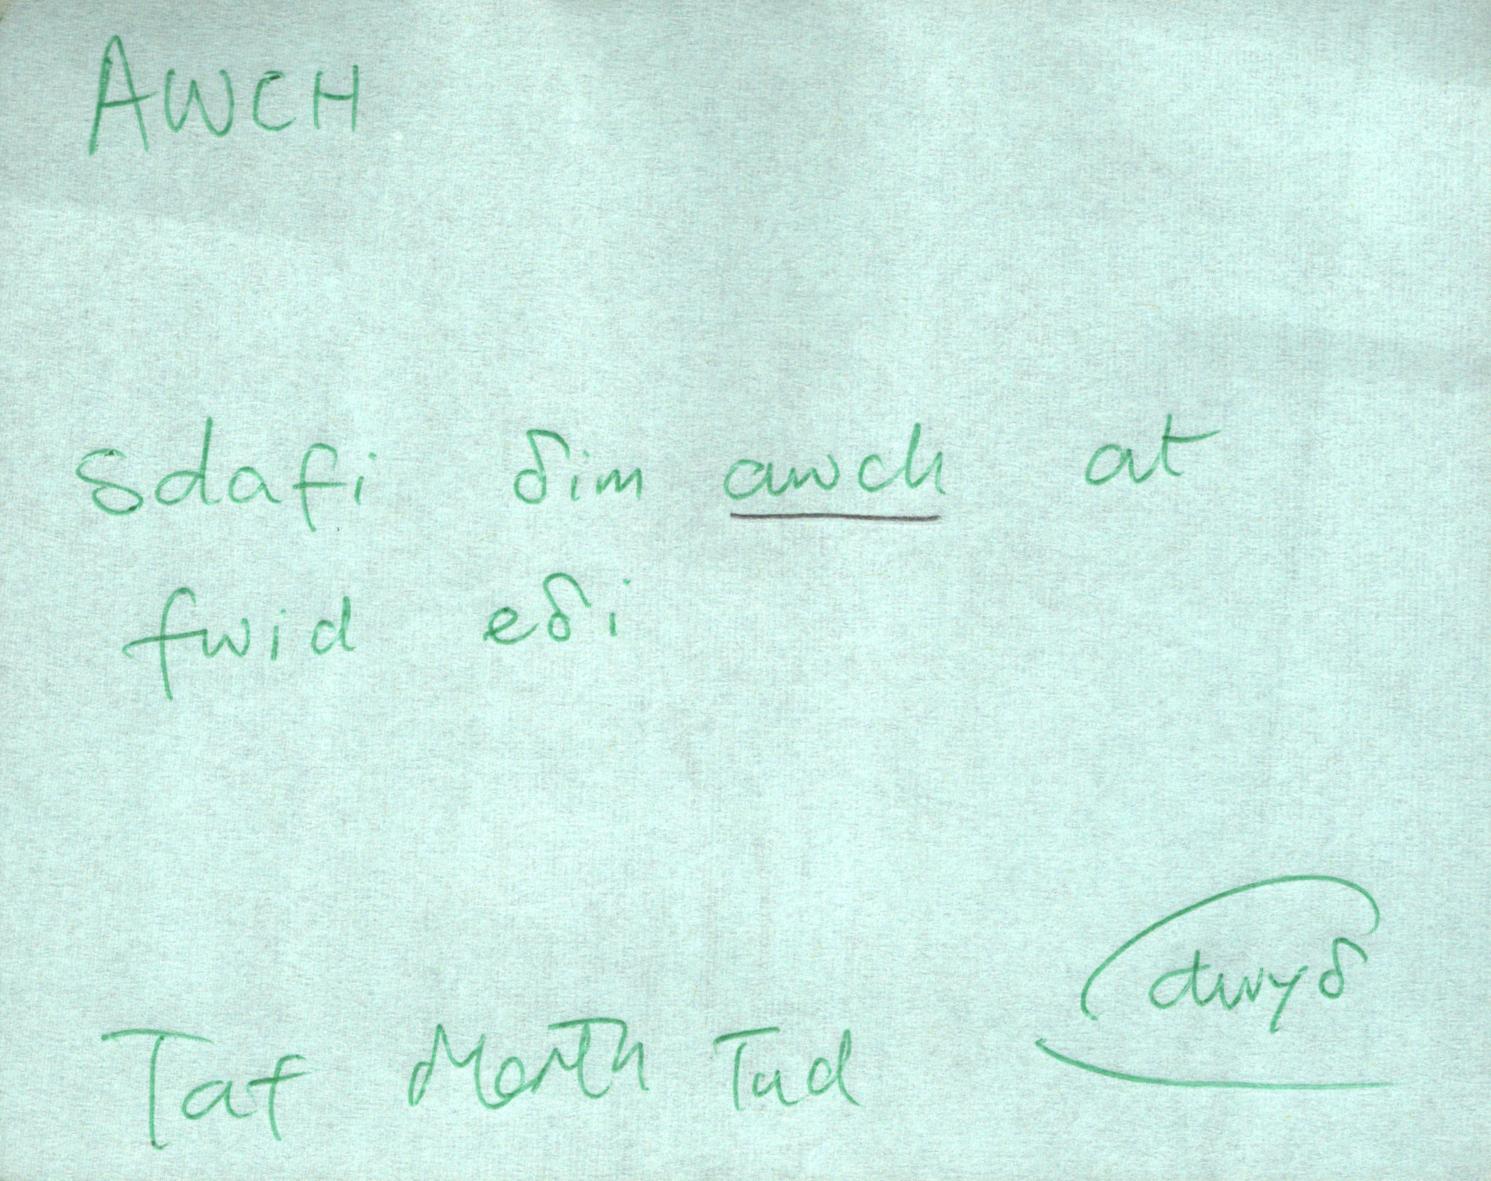 AWCH
sdafi δim awch at
fwid eδi
dwyδ
Taf Morth Tud